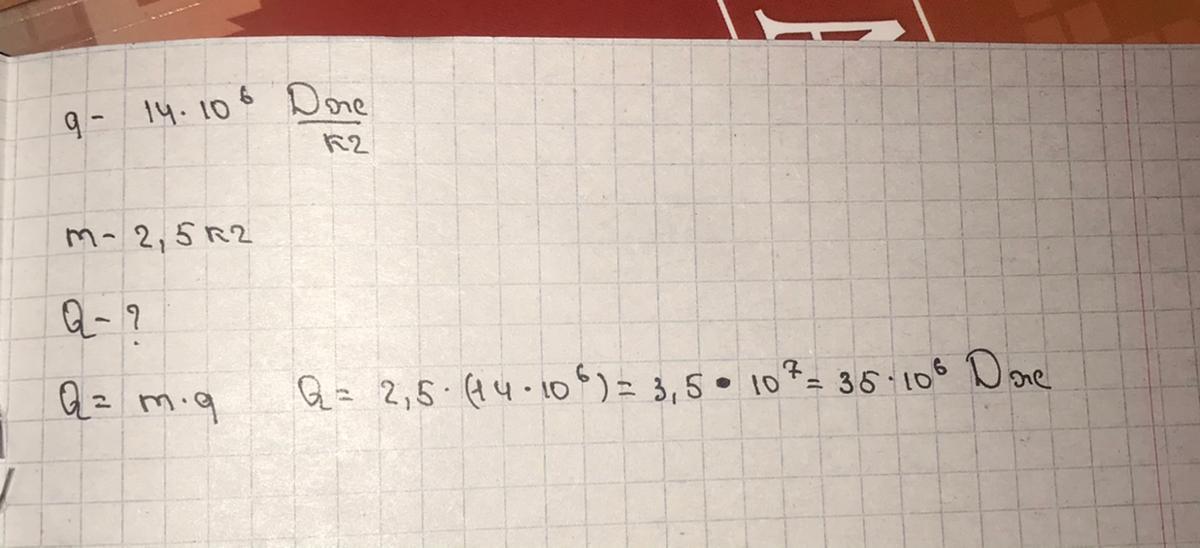 q - 14 · 10⁶ Дже/кг
m - 2,5 кг
Q - ?
Q = m · q   Q = 2,5 · (14 · 10⁶) = 3,5 • 10⁷ = 35 · 10⁶ Дже